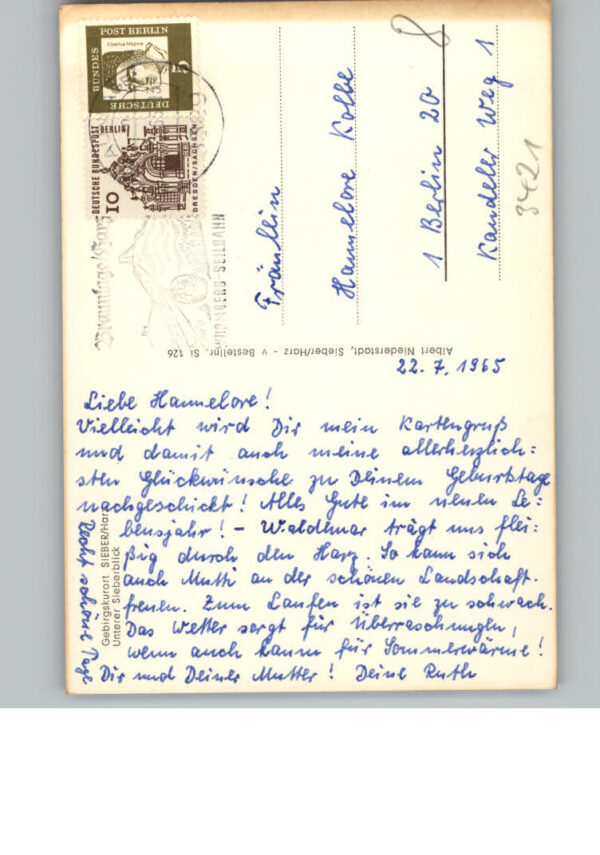 Albertus Magnus
DEUTSCHE BUNDESPOST BERLIN
5
DEUTSCHE BUNDESPOST BERLIN
10
DRESDEN/SACHSEN
Braunlage/Harz
WURMBERG-SEILBAHN
8
Fräullein
Hannelore Kolbe
1 Berlin 20
Kandeler Weg 1
3421
Albert Niederstadt, Sieber/Harz - v Bestellnr. Si 126
22. 7. 1965
Liebe Hannelore!
Vielleicht wird Dir mein Kartengruß
und damit auch meine allerherzlich=
sten Glückwünsche zu Deinem Geburtstage
nachgeschickt! Alles Gute im neuen Le=
bensjahr! - Waldemar trägt uns flei=
ßig durch den Harz. So kann sich
auch Mutti an der schönen Landschaft
freuen. Zum Laufen ist sie zu schwach.
Das Wetter sorgt für Überraschungen,
wenn auch kaum für Sommerwärme!
Recht schöne Tage
Dir und Deiner Mutter! Deine Ruth
Gebirgskurort SIEBER/Harz
Unterer Sieberblick